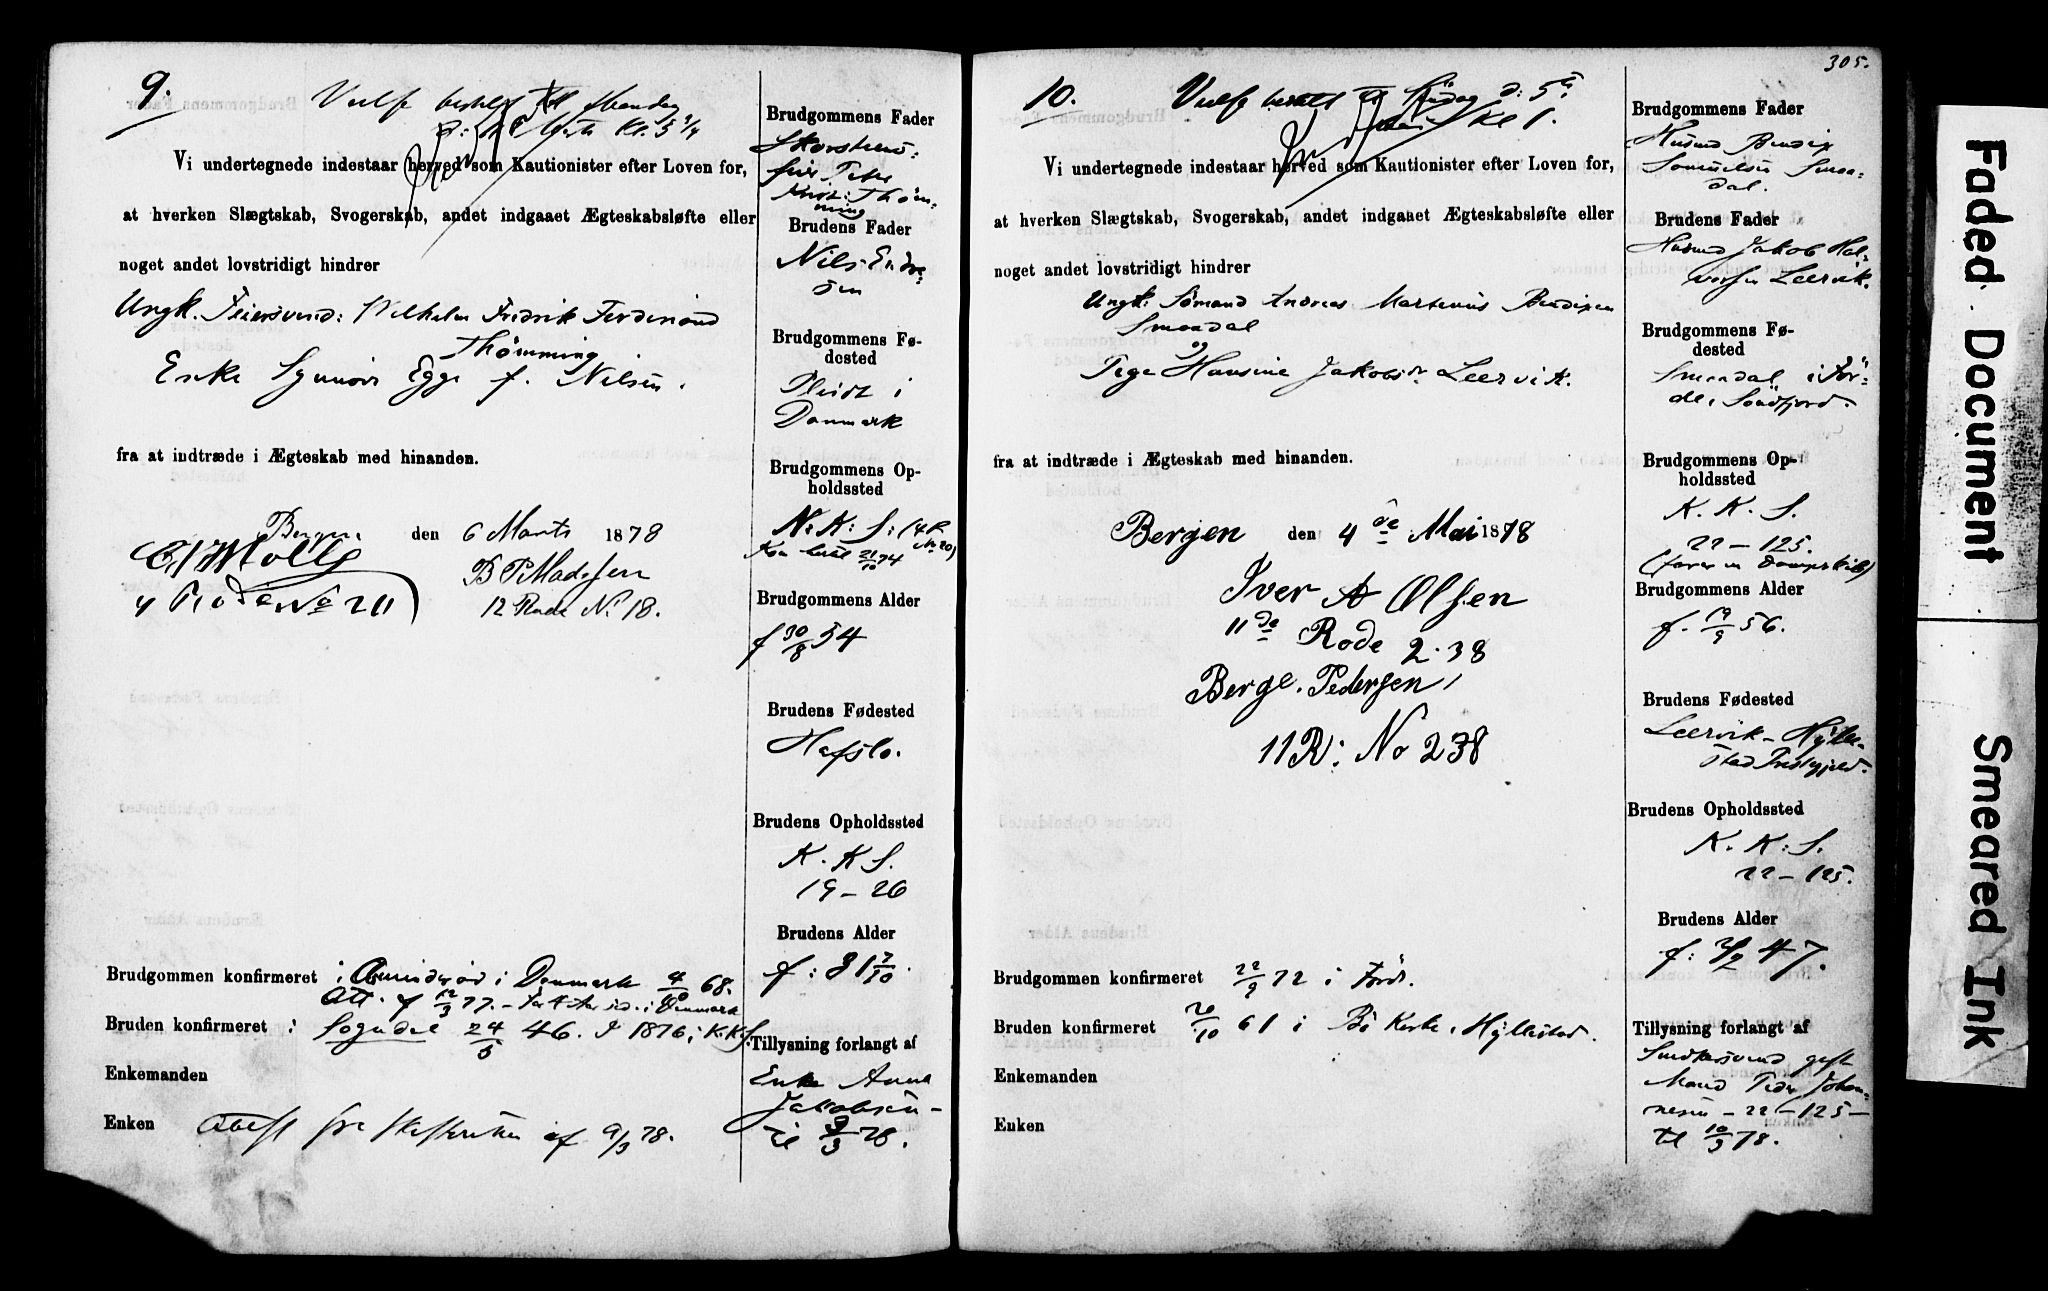 9.
Vielse bestilt til Mandag
Kl. 5 3/4
Vi undertegnede indestaar herved som Kautionister efter Loven for,
at hverken Slægtskab, Svogerskab, andet indgaaet Ægteskabsløfte eller
noget andet lovstridigt hindrer
Ungk. Feiersvend: Vilhelm Fredrik Ferdinand
Thømming
Enke Synnøve Egge f. Nilsen.
fra at indtræde i Ægteskab med hinanden.
Bergen den 6 Marts 1878
B P Madssen
4 Rode No 20
12 Rode No 18.
Brudgommen konfirmeret i Danmark 4/10 68.
Att. af 12/3 77. i Danmark
Bruden konfirmeret i Sogndal 24/5 46. 1876 i K.K.S.
Enkemanden
Enken Attest fra Skifteretten af 9/3 78.
Brudgommens Fader
Skorsteens:
feier
Thøm:
ming
Brudens Fader
Nils Endre:
sen
Brudgommens Fø-
dested
i
Danmark
Brudgommens Op-
holdssted
N: K: S: (4 R
No 20)
21/10 74
Brudgommens Alder
f 30/8 54
Brudens Fødested
Hafslo.
Brudens Opholdssted
K. K S.
19 – 26
Brudens Alder
f: 31 7/10.
Tillysning forlangt af
Enke Anna
Jakobsen –
til 9/3 78.
305.
10.
Vielse bestilt til Søndag d: 5te
Mai Kl 1.
Vi undertegnede indestaar herved som Kautionister efter Loven for,
at hverken Slægtskab, Svogerskab, andet indgaaet Ægteskabsløfte eller
noget andet lovstridigt hindrer
Ungk: Sømand Andreas Martinus Bendixen
Smaadal
og
Pige Hansine Jakobsdr Leervik.
fra at indtræde i Ægteskab med hinanden.
Bergen den 4de Mai 1878
Iver A Olsen
11de Rode 238
Berge. Pedersen
11 R: No 238
Brudgommen konfirmeret 22/9 72 i Førde.
Bruden konfirmeret 20/10 61 i Bø Kirke i Hyllestad.
Enkemanden
Enken
Brudgommens Fader
Husmd Bendix
Samuelsen Smaa:
dal.
Brudens Fader
Husmd Jakob Hal:
vorsen Leervik.
Brudgommens Fø-
dested
Smaadal i Før:
de, Søndfjord.
Brudgommens Op-
holdssted
K. K. S.
22 – 125.
(farer m Dampskib)
Brudgommens Alder
f. 19/9 56.
Brudens Fødested
Leervik – Hylle:
stad Præstegjeld.
Brudens Opholdssted
K. K: S.
22 – 125.
Brudens Alder
f: 3/2 47.
Tillysning forlangt af
Snedkersvend gift
Mand Peder Johan:
nesen – 22 – 125 –
til 10/3 78.
Faded Document
Smeared Ink